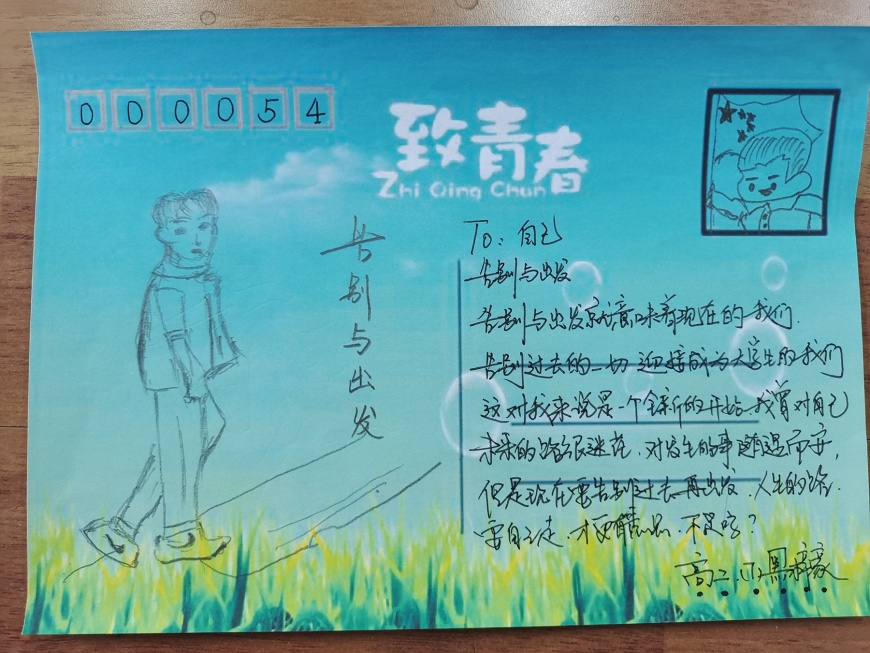 000054
致青春
Zhi Qing Chun
告别与出发
To：自己
告别与出发
告别与出发就意味着现在的我们.
告别过去的一切 迎接成为大学生的我们
这对我来说是一个全新的开始.我曾对自己
未来的路很迷茫.对发生的事随遇而安,
但是现在要告别过去.再出发.人生的路.
要自己走.才更精品.不是吗?
高二.